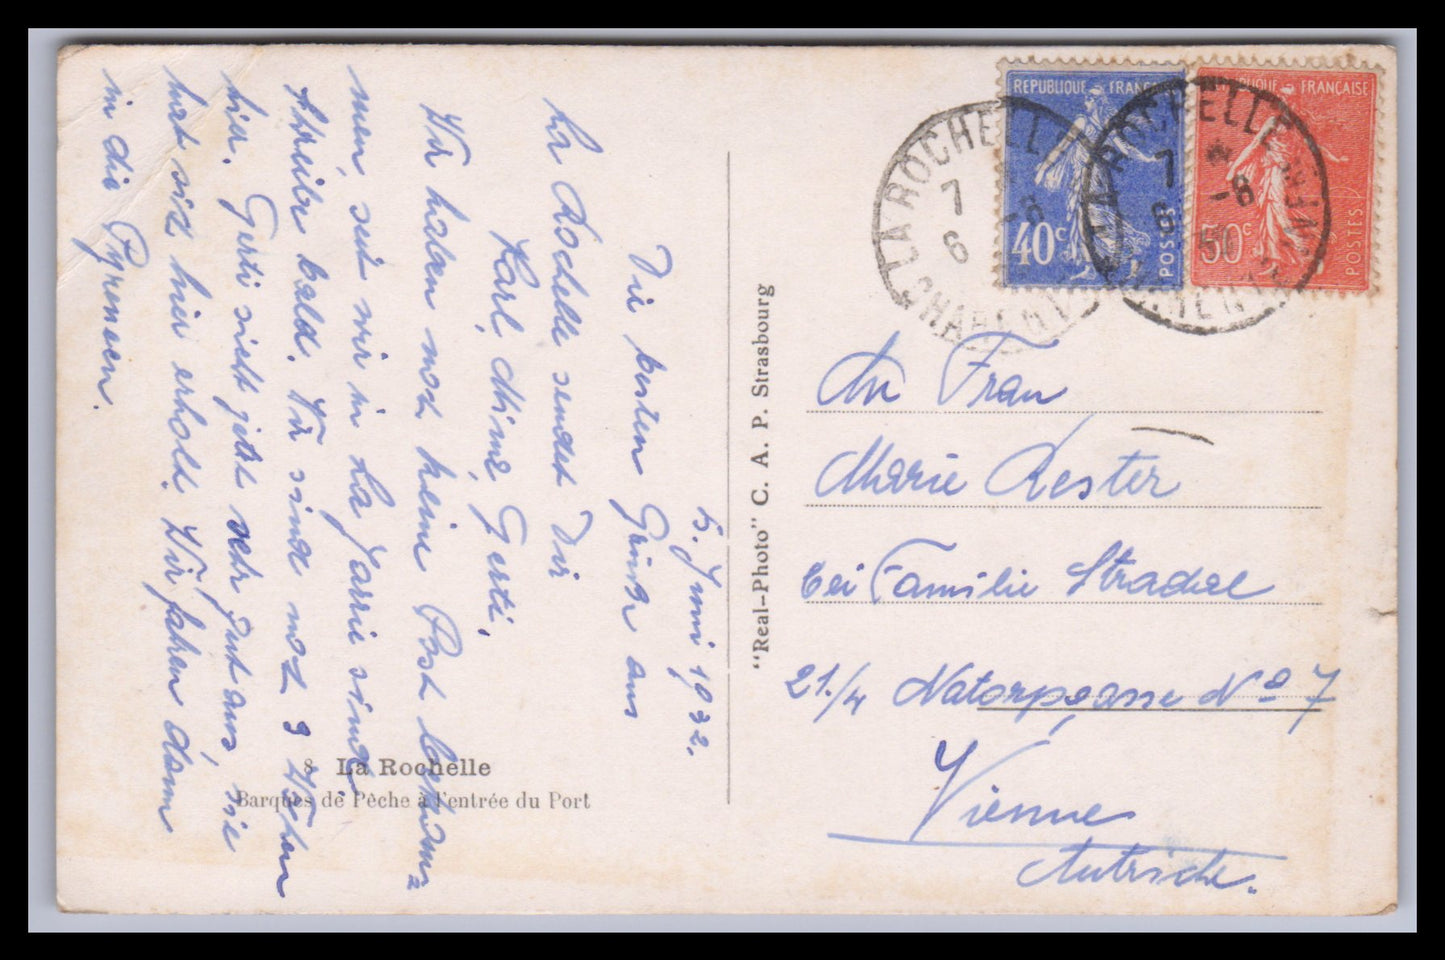 5. Juni 1932.
Die besten Grüße aus
La Rochelle sendet Dir
Karl, Mimi, Gerti.
Wir haben noch keine Post bekom-
men seit wir in La Jarrie sind.
Schreibe bald. Wir sind noch 3 Wochen
hier. Gerti sieht jetzt sehr gut aus, sie
hat sich hier erholt. Wir fahren dann
in die Pyreneen.
8 La Rochelle
Barques de Pêche à l'entrée du Port
"Real-Photo" C. A. P. Strasbourg
REPUBLIQUE FRANÇAISE
40c
POSTES
FRANÇAISE
50c
POSTES
LA ROCHELLE
7 -8
6
LA ROCHELLE
7 -8
6
An Frau
Marie Rester
bei Familie Stradal
21./4 Natorpgasse No 7
Vienne
Autriche.